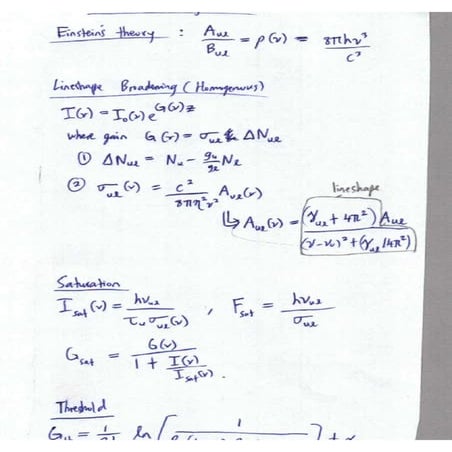 Einstein's theory : A_ul / B_ul = ρ(ν) = 8πhν³ / c³
Lineshape Broadening (Homogenous)
I(ν) = I₀(ν) e^{G(ν)z}
where gain G(ν) = σ_ul ΔN_ul
① ΔN_ul = N_u - g_u/g_l N_l
② σ_ul(ν) = c² / 8πη²ν² A_ul(ν)
lineshape
↳ A_ul(ν) = (γ_ul + 4π²) A_ul / (ν-ν₀)² + (γ_ul/4π²)
Saturation
I_sat(ν) = hν_ul / τ_u σ_ul(ν) , F_sat = hν_ul / σ_ul
G_sat = G(ν) / 1 + I(ν)/I_sat(ν) .
Threshold
ln [ 1